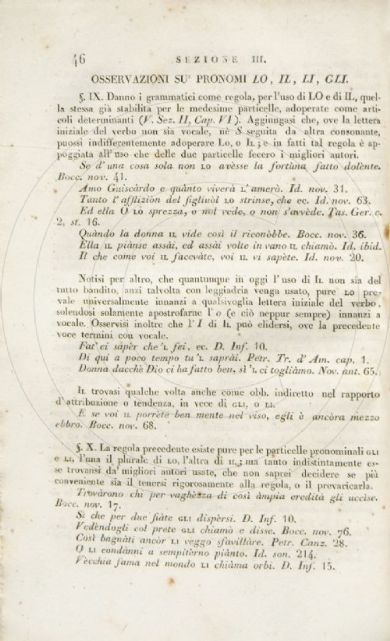 46 SEZIONE III.
OSSERVAZIONI SU' PRONOMI LO, IL, LI, GLI.
§. IX. Danno i grammatici come regola, per l'uso di LO e di IL, quel-
la stessa già stabilita per le medesime particelle, adoperate come arti-
coli determinanti (V. Sez. II, Cap. VI). Aggiungasi che, ove la lettera
iniziale del verbo non sia vocale, nè S seguita da altra consonante,
puossi indifferentemente adoperare Lo, o IL; e in fatti tal regola è ap-
poggiata all'uso che delle due particelle fecero i migliori autori.
Se d'una cosa sola non LO avèsse la fortùna fatto dolènte.
Bocc. nov. 41.
Amo Guiscàrdo e quànto viverà L' amerò. Id. nov. 31.
Tanto l'afflizión del figliuòl LO strinse, che ec. Id. nov. 63.
Ed ella O LO sprezza, o nol vede, o non s'avvède. Tas. Ger. c.
2, st. 16.
Quàndo la donna IL vide così il riconòbbe. Bocc. nov. 36.
Ella IL piànse assài, ed assài volte in vano IL chiamò. Id. ibid.
Il che come voi IL facevàte, voi IL vi sapète. Id. nov. 20.
Notisi per altro, che quantunque in oggi l'uso di IL non sia del
tutto bandito, anzi talvolta con leggiadria venga usato, pure LO pre-
vale universalmente innanzi a qualsivoglia lettera iniziale del verbo,
solendosi solamente apostrofarne l'o (e ciò neppur sempre) innanzi a
vocale. Osservisi inoltre che l'I di IL può elidersi, ove la precedente
voce termini con vocale.
Fat' ei sapèr che 'L fei, ec. D. Inf. 10.
Di qui a poco tempo tu 'L saprài. Petr. Tr. d' Am. cap. 1.
Donna dacchè Dio ci ha fatto ben, sì 'L ci togliàmo. Nov. ant. 65.
IL trovasi qualche volta anche come obb. indiretto nel rapporto
d'attribuzione o tendenza, in vece di GLI, o LI.
E se voi IL porrète ben mente nel viso, egli è ancòra mezzo
ebbro. Bocc. nov. 68.
§. X. La regola precedente esiste pure per le particelle pronominali GLI
e LI, l'una il plurale di LO, l'altra di IL; ma tanto indistintamente es-
se trovansi da' migliori autori usate, che non saprei decidere se più
conveniente sia il tenersi rigorosamente alla regola, o il prevaricarla.
Trovàrono chi per vaghèzza di così àmpia eredità gli uccise.
Bocc. nov. 17.
Si che per due fiàte GLI dispèrsi. D. Inf. 10.
Vedèndogli col prete GLI chiamò e disse. Bocc. nov. 76.
Così bagnàti ancòr LI veggo sfavillàre. Petr. Canz. 28.
O LI condànni a sempitèrno piànto. Id. son. 214.
Vecchia fama nel mondo LI chiàma orbi. D. Inf. 15.